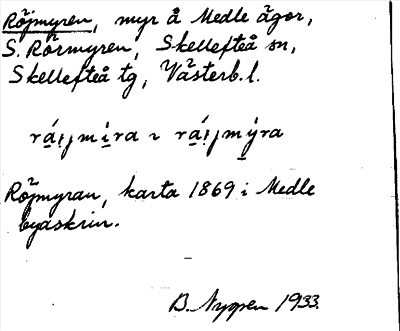 Röjmyren, myr å Medle ägor,
S. Rörmyren, Skellefteå sn,
Skellefteå tg, Västerb. l.
Röjmyran, karta 1869 i Medle
byaskrin.
B. Nygren 1933.